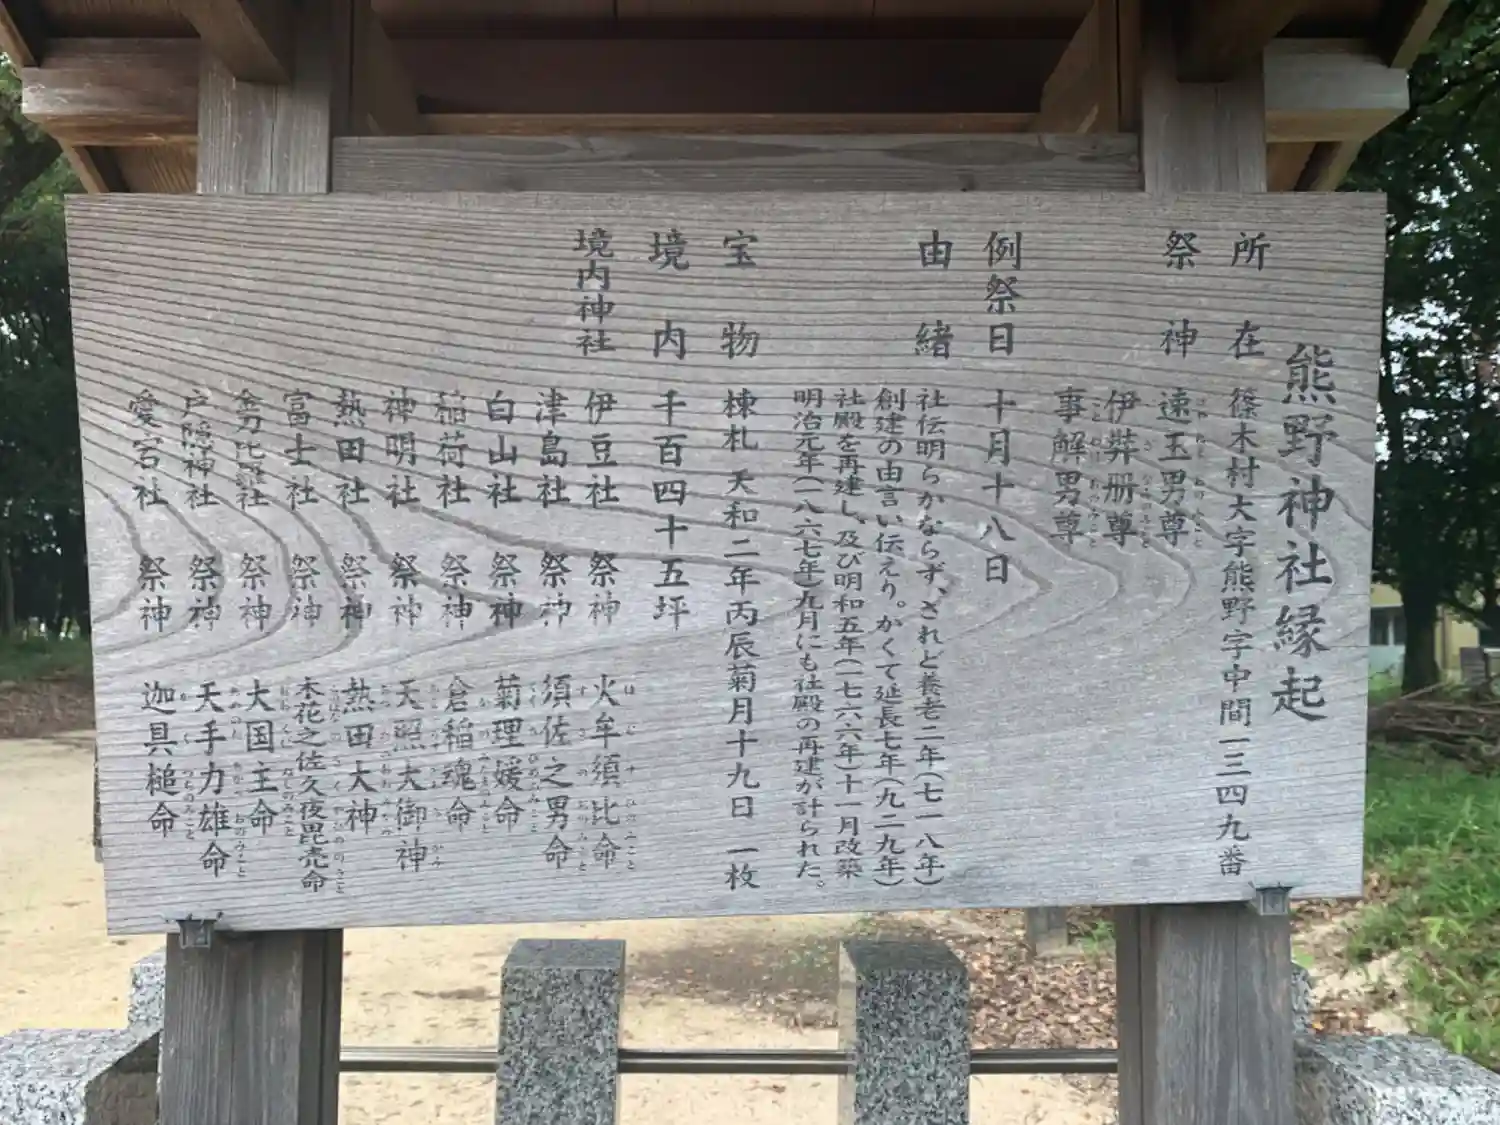 熊野神社縁起
所在 篠木村大字熊野字中間一三四九番
祭神 速玉男尊
伊弉册尊
事解男尊
例祭日 十月十八日
由緒 社伝明らかならず、されど養老二年(七一八年)
創建の由言い伝えり。かくて延長七年(九二九年)
社殿を再建し、及び明和五年(一七六六年)十一月改築
明治元年(一八六七年)九月にも社殿の再建が計られた。
宝物 棟札 天和二年丙辰菊月十九日 一枚
境内 千百四十五坪
境内神社 伊豆社 祭神 火牟須比命
津島社 祭神 須佐之男命
白山社 祭神 菊理媛命
稲荷社 祭神 倉稲魂命
神明社 祭神 天照大御神
熱田社 祭神 熱田大神
富士社 祭神 木花之佐久夜毘売命
金刀比羅社 祭神 大国主命
戸隠神社 祭神 天手力雄命
愛宕社 祭神 迦具槌命